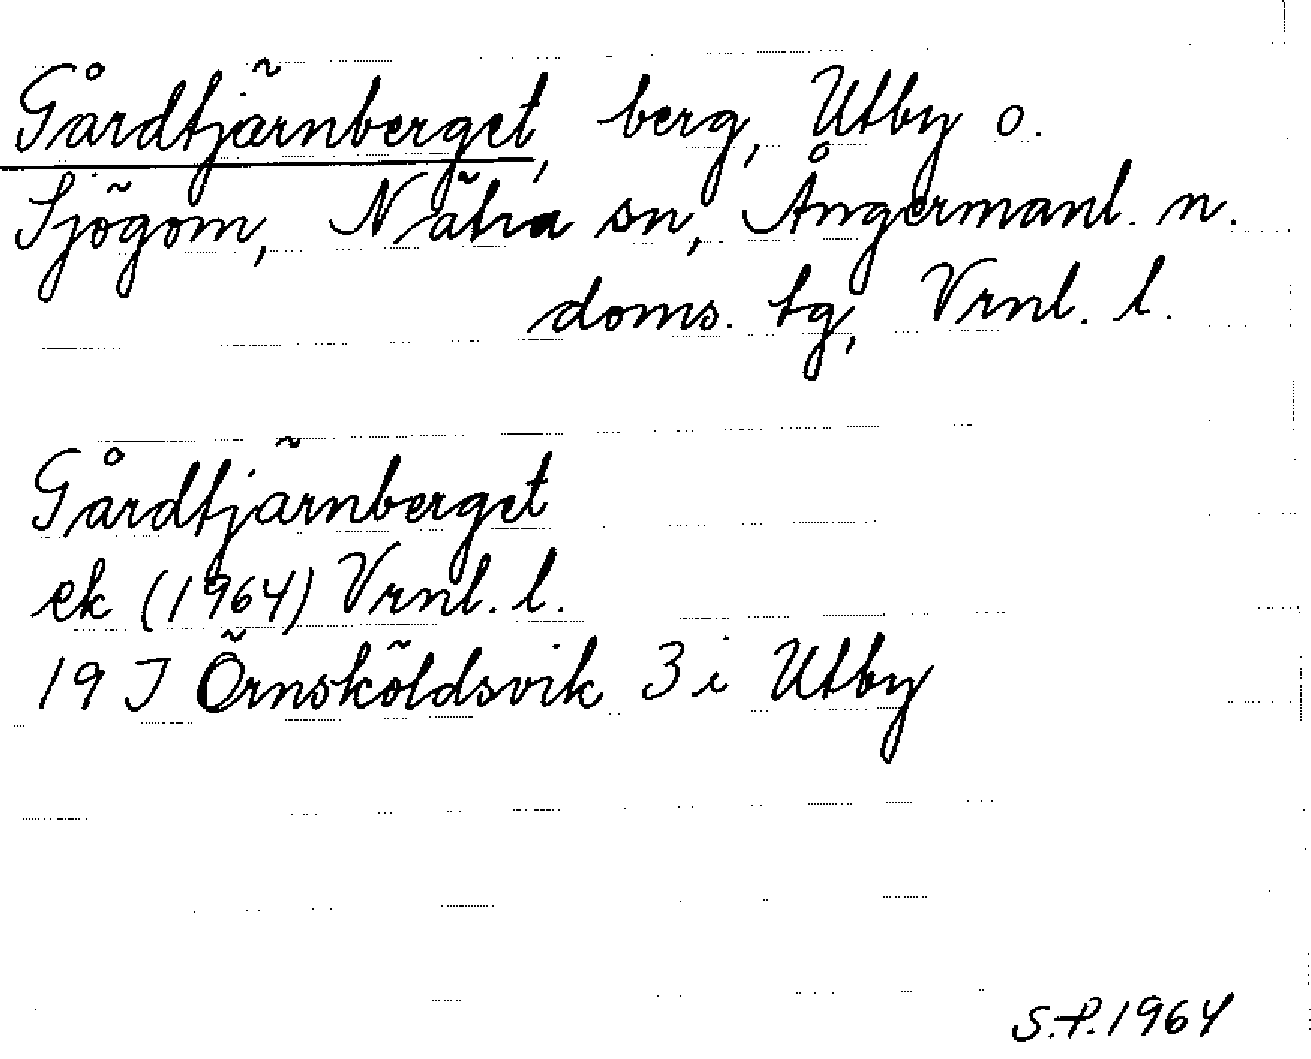 Gårdtjärnberget, berg, Utby o.
Sjögom, Nätra sn, Ångermanl. n.
doms. tg, Vrnl. l.
Gårdtjärnberget
ek (1964) Vrnl. l.
19 I Örnsköldsvik 3 i Utby
S.P. 1964